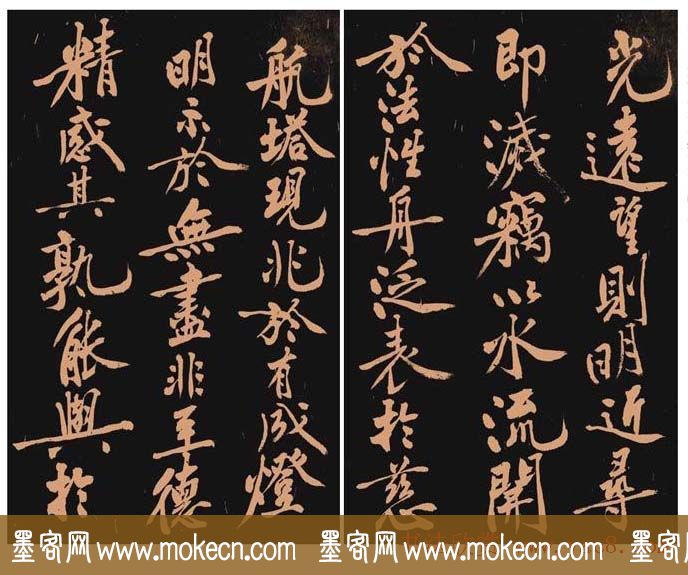 光遠望則明近尋
即滅竊以水流開
於法性舟泛表於慈
航塔現兆於有成燈
明示於無盡非至德
精感其孰能與於
墨客网 www.mokecn.com 墨客网 www.mokecn.com 墨客网